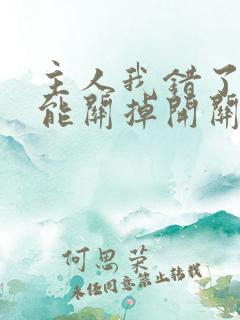 主人我错了
能關掉開關
何思荣
未经同意禁止转载